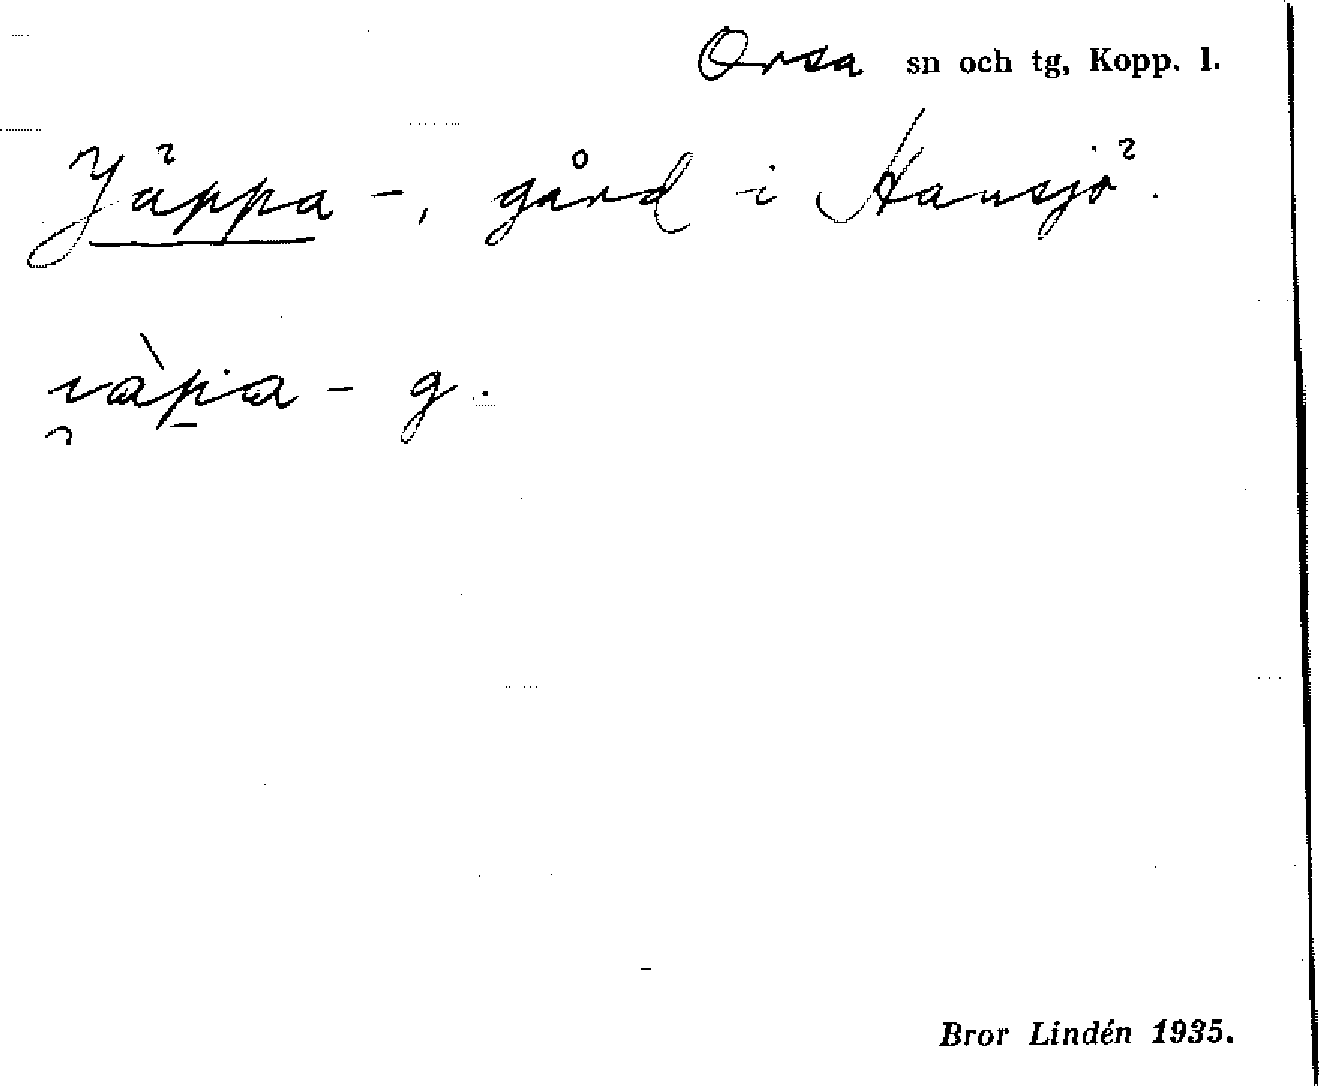 Orsa sn och tg, Kopp. l.
Jäppa -, gård i Hansjö.
g.
Bror Lindén 1935.